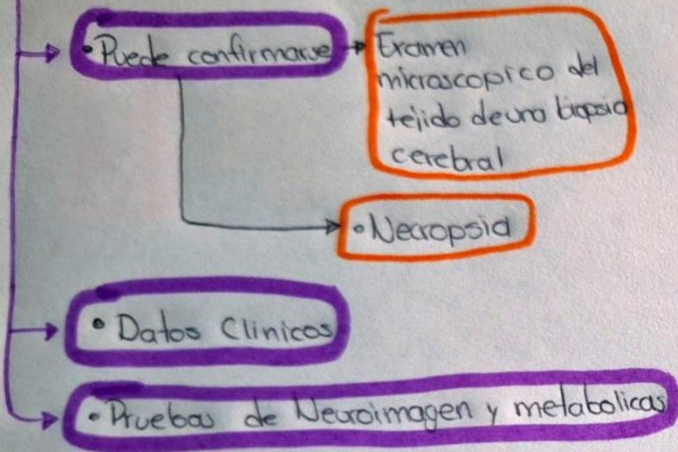 • Puede confirmarse
Examen
microscopico del
tejido de una biopsia
cerebral
• Necropsia
• Datos Clinicos
• Pruebas de Neuroimagen y metabolicas